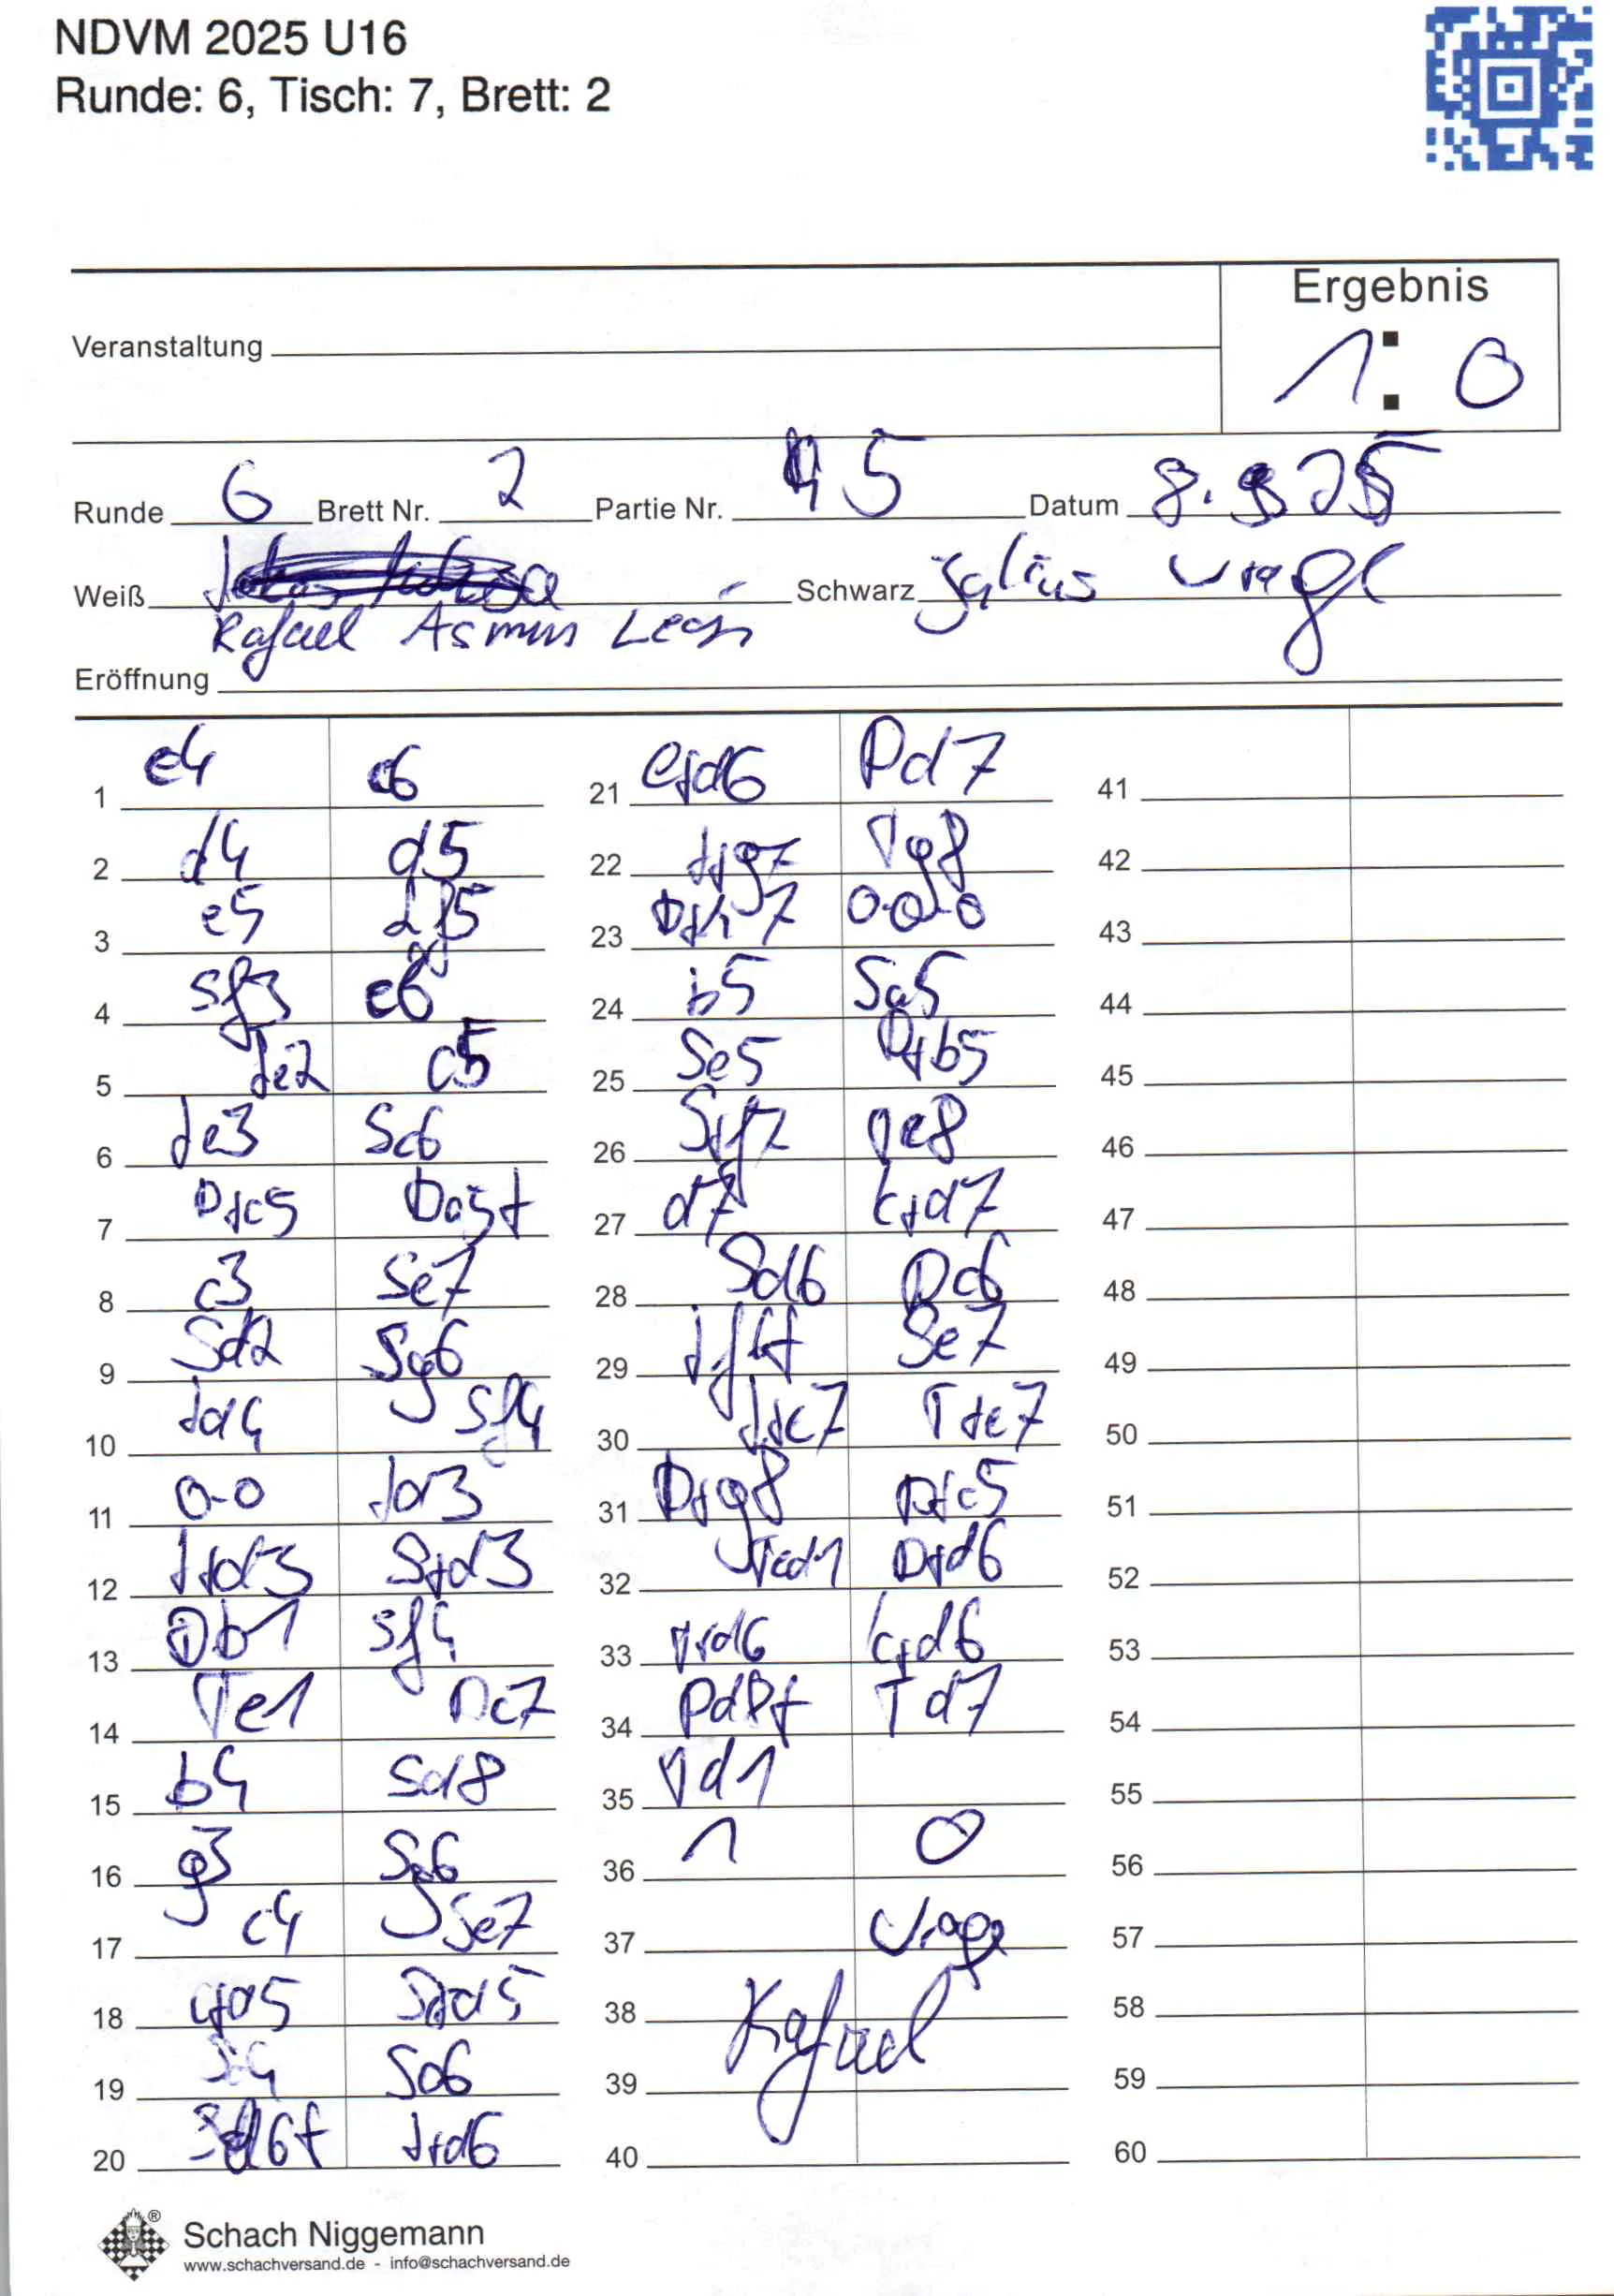 NDVM 2025 U16
Runde: 6, Tisch: 7, Brett: 2
Ergebnis
Veranstaltung
1 : 0
Runde 6 Brett Nr. 2 Partie Nr. 5 Datum 8. 25
Weiß Schwarz Julius
Rafael Asmus León
Eröffnung
1 e4 c6 21 exd6 Dd7 41
2 d4 d5 22 Lxg7 Tg8 42
3 e5 Lf5 23 Dxh7 0-0-0 43
4 Sf3 e6 24 b5 Sa5 44
5 Le2 c5 25 Se5 Dxb5 45
6 Le3 Sc6 26 Sxf7 Te8 46
7 Dxc5 Da5+ 27 d7 Kxd7 47
8 c3 Se7 28 Sd6 Dc6 48
9 Sd2 Sg6 29 Lf6+ Se7 49
10 Ld4 Sf4 30 Lxe7 Txe7 50
11 0-0 Ld3 31 Dxg8 Dxc5 51
12 Lxd3 Sxd3 32 Ted1 Dxd6 52
13 Db1 Sf4 33 Txd6 Kxd6 53
14 Te1 Dc7 34 Dd8+ Td7 54
15 b4 Sd8 35 Td1 55
16 g3 Sg6 36 1 0 56
17 c4 Se7 37 57
18 cxd5 Sxd5 38 Rafael 58
19 Sc6 39 59
20 Sd6+ Lxd6 40 60
Schach Niggemann
www.schachversand.de - info@schachversand.de